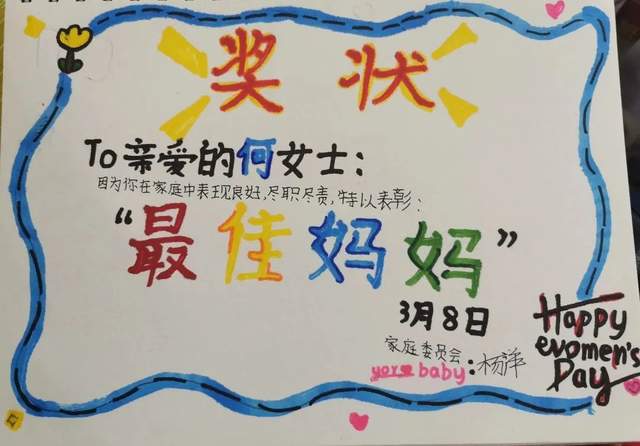 奖状
To亲爱的何女士：
因为你在家庭中表现良好,尽职尽责,特以表彰：
“最佳妈妈”
3月8日
家庭委员会
your baby：杨萍
Happy
women's
Day